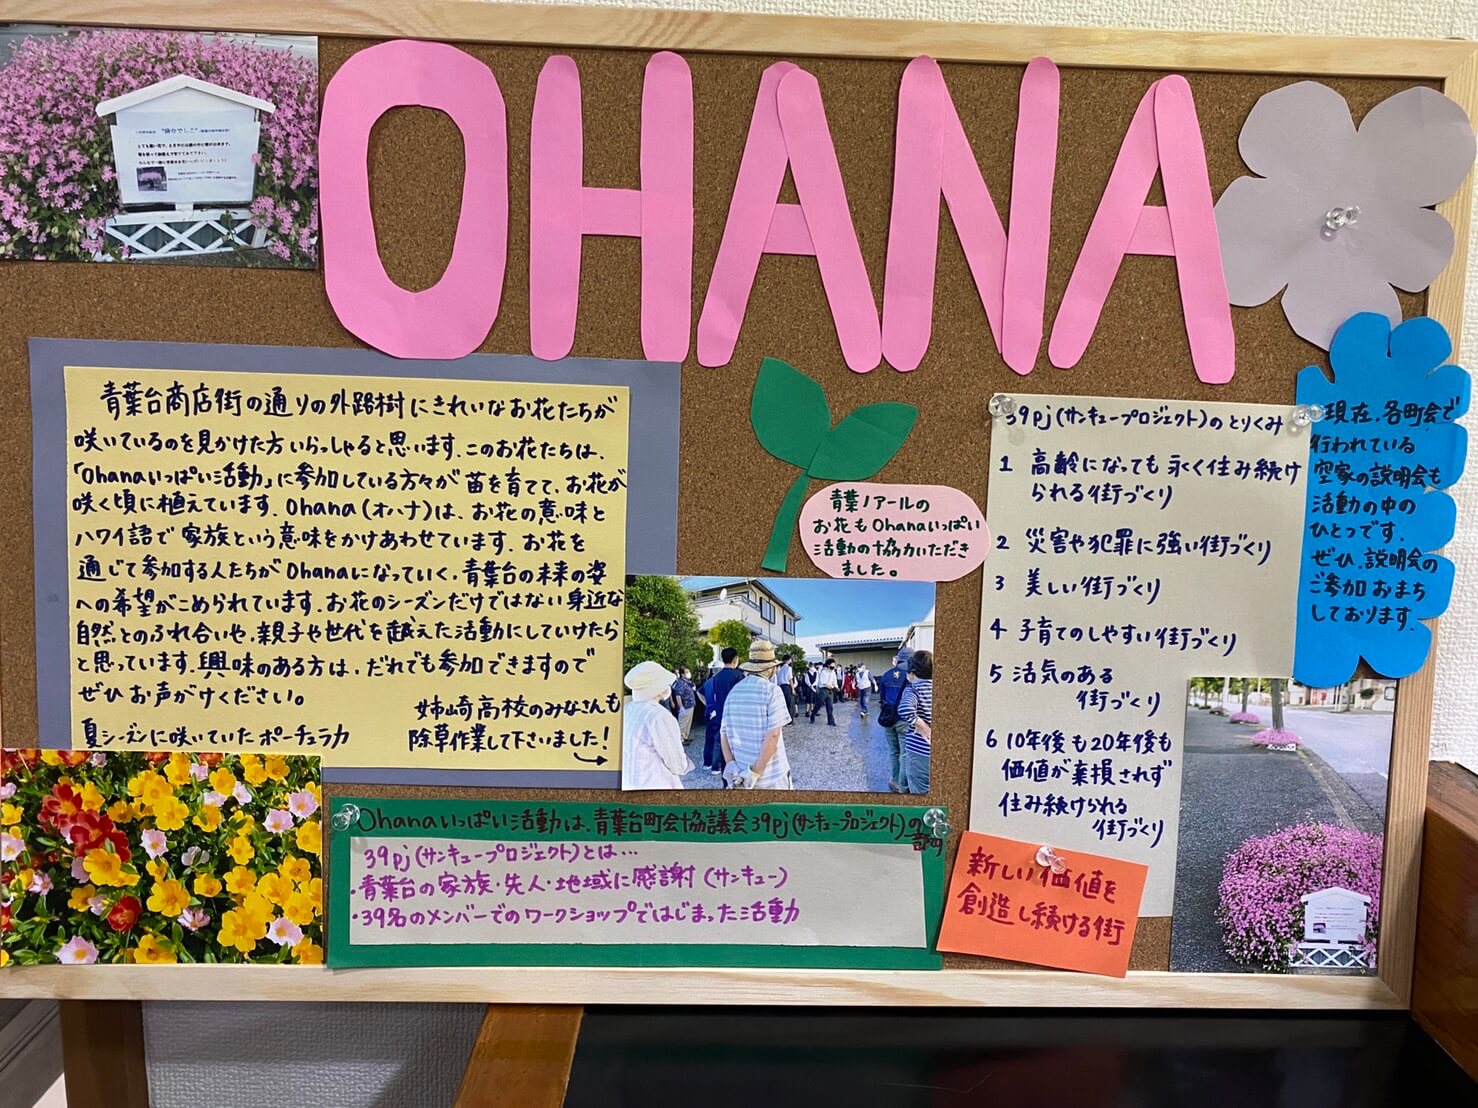 OHANA
"姫なでしこ"
青葉台商店街の通りの外路樹にきれいなお花たちが
咲いているのを見かけた方いらっしゃると思います.このお花たちは、
「Ohanaいっぱい活動」に参加している方々が苗を育てて、お花が
咲く頃に植えています. Ohana (オハナ)は、お花の意味と
ハワイ語で家族という意味をかけあわせています. お花を
通じて参加する人たちがOhanaになっていく.青葉台の未来の姿
への希望がこめられています.お花のシーズンだけではない身近な
自然とのふれ合いや、親子や世代を越えた活動にしていけたら
と思っています.興味のある方は、だれでも参加できますので
ぜひお声がけください。
姉崎高校のみなさんも
除草作業して下さいました!
夏シーズンに咲いていたポーチュラカ
青葉ノアールの
お花もOhanaいっぱい
活動の協力いただき
ました。
39pj(サンキュープロジェクト)のとりくみ
1 高齢になっても永く住み続け
られる街づくり
2 災害や犯罪に強い街づくり
3 美しい街づくり
4 子育てのしやすい街づくり
5 活気のある
街づくり
6 10年後も20年後も
価値が棄損されず
住み続けられる
街づくり
現在、各町会で
行われている
空家の説明会も
活動の中の
ひとつです.
ぜひ、説明会の
ご参加おまち
しております.
Ohanaいっぱい活動は、青葉台町会協議会39pj(サンキュープロジェクト)の
部門
39pj(サンキュープロジェクト)とは…
・青葉台の家族・先人・地域に感謝(サンキュー)
・39名のメンバーでのワークショップではじまった活動
新しい価値を
創造し続ける街